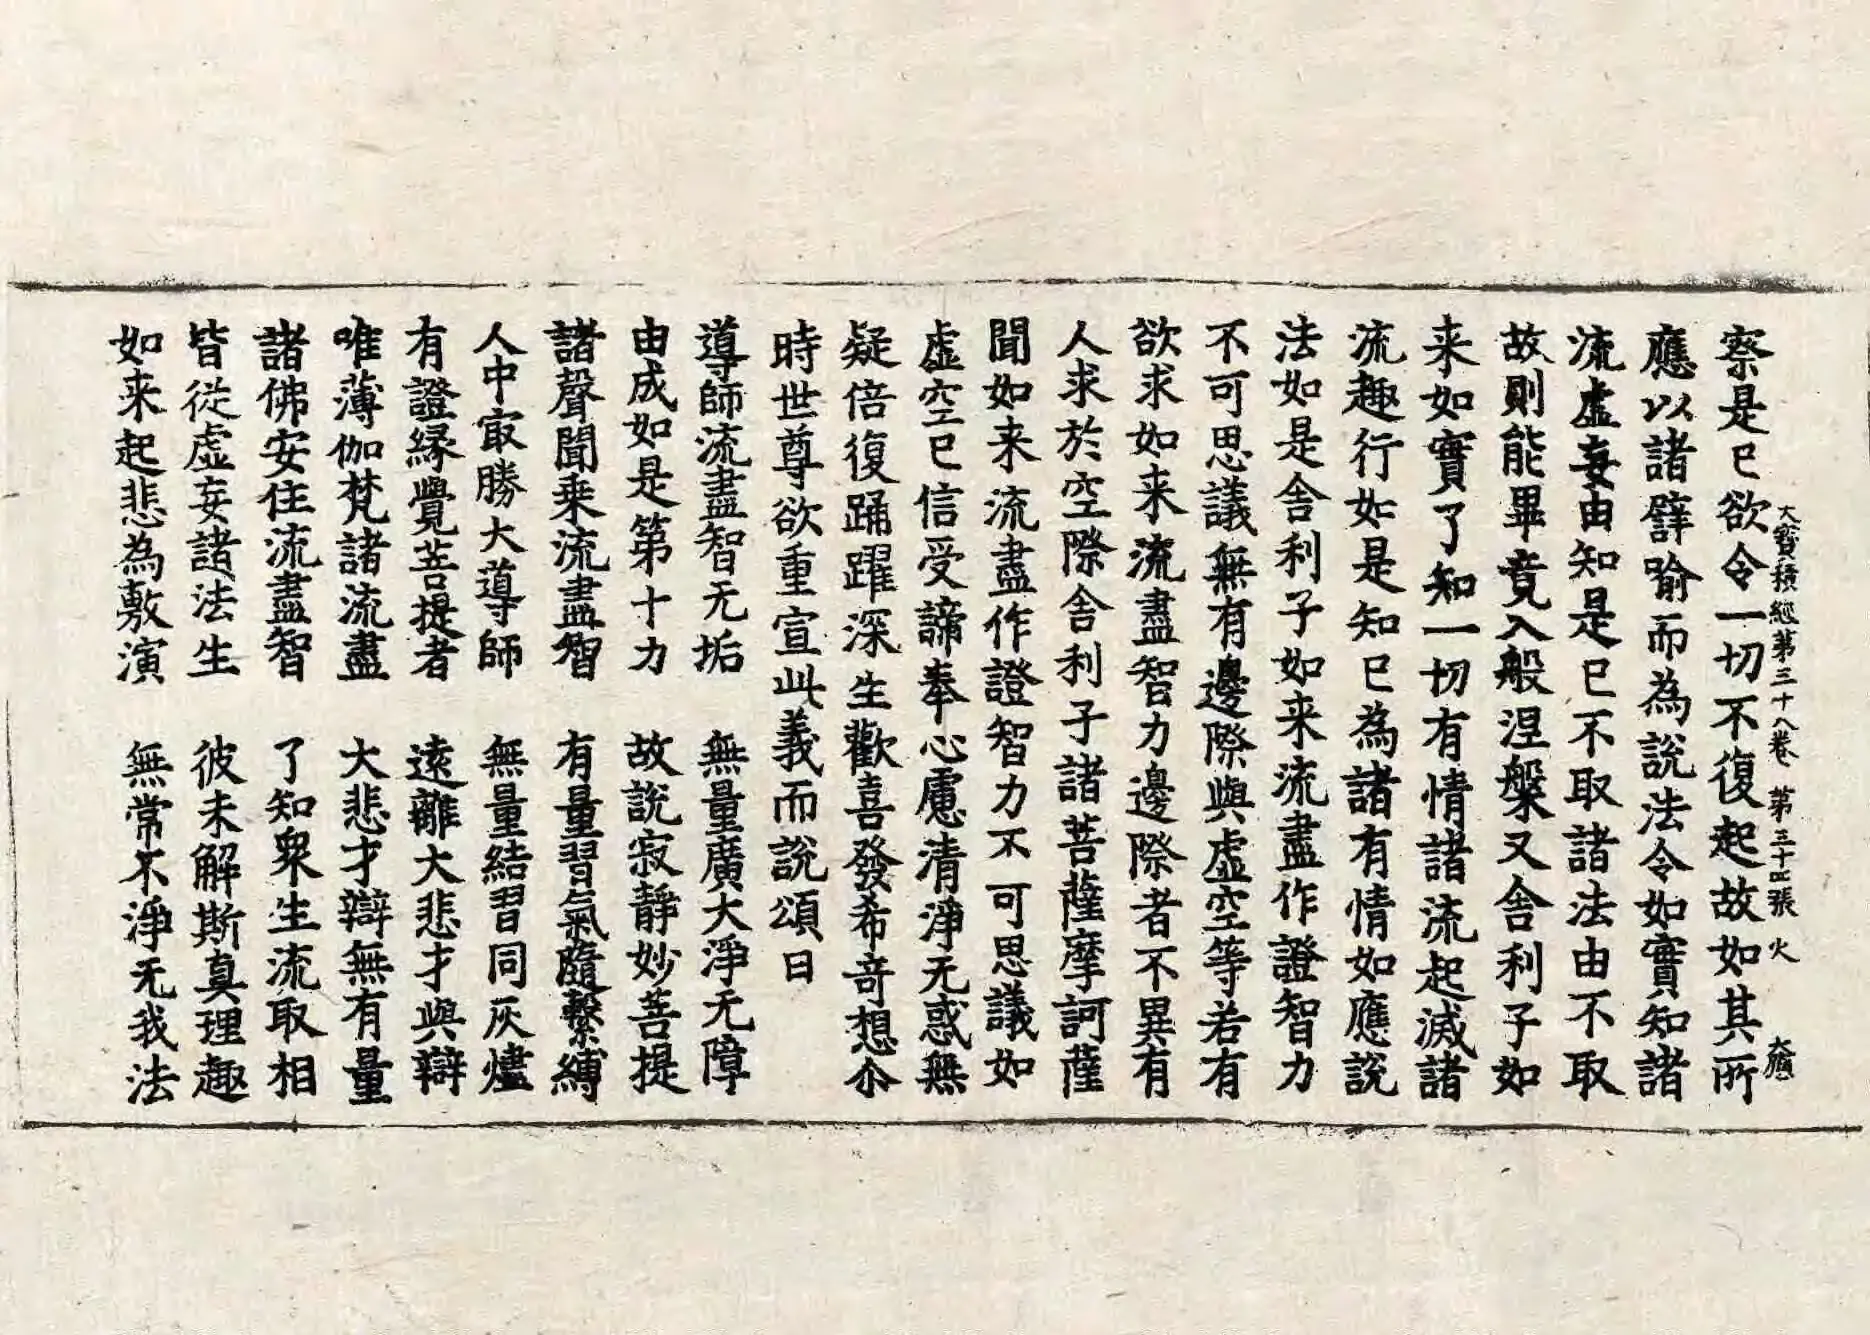 大寶積經第三十八卷 第三十四張 火
察是已欲令一切不復起故如其所
應以諸譬喻而為說法令如實知諸
流虛妄由知是已不取諸法由不取
故則能畢竟入般涅槃又舍利子如
来如實了知一切有情諸流起滅諸
流趣行如是知已為諸有情如應說
法如是舍利子如来流盡作證智力
不可思議無有邊際與虛空等若有
欲求如来流盡智力邊際者不異有
人求於空際舍利子諸菩薩摩訶薩
聞如来流盡作證智力不可思議如
虛空已信受諦奉心慮清淨无惑無
疑倍復踊躍深生歡喜發希奇想尒
時世尊欲重宣此義而說頌曰
導師流盡智无垢 無量廣大淨无障
由成如是第十力 故說寂靜妙菩提
諸聲聞乗流盡智 有量習氣隨繫縛
人中㝡勝大導師 無量結習同灰燼
有證緣覺菩提者 遠離大悲才與辯
唯薄伽梵諸流盡 大悲才辯無有量
諸佛安住流盡智 了知衆生流取相
皆從虛妄諸法生 彼未解斯真理趣
如来起悲為敷演 無常不淨无我法